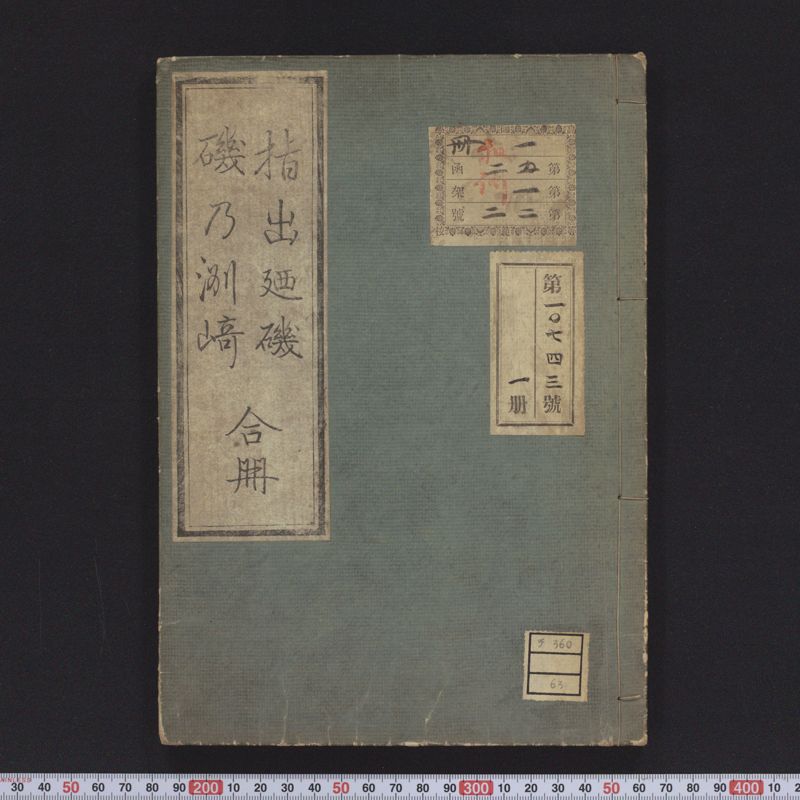 指出廼磯
磯乃浏﨑
合冊
第一〇七四三號
一册
第
函
第
架
第
號
一册
360
63
30 40 50 60 70 80 90 200 10 20 30 40 50 60 70 80 90 300 10 20 30 40 50 60 70 80 90 400 10